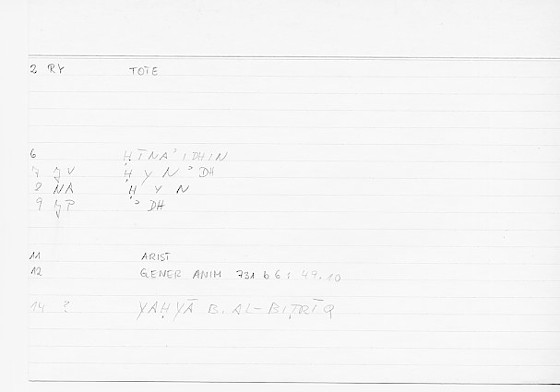 2 RY TOTE
6 ḤĪNAʾIDHIN
7 JV ḤYNʾDH
8 NA ḤYN
9 JP ʾDH
11 ARIST
12 GENER ANIM 731 b 6 : 49.10
14 ? YAḤYĀ B. AL-BIṬRĪQ